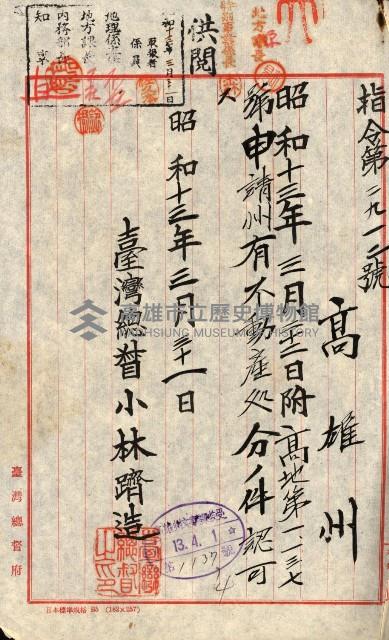 指令第二九一二號
高雄州
昭和十三年三月十二日附高地第一、一三七
號申請州有不動産処分ノ件認可
ス
昭和十三年三月三十一日
臺灣總督小林躋造
臺灣總督之印
供閲
地理係
係員
地方課長
内務部長
知事
高雄市立歷史博物館
KAOHSIUNG MUSEUM OF HISTORY
13.4.1
第1137號
臺灣總督府
日本標準規格 B5 (182×257)